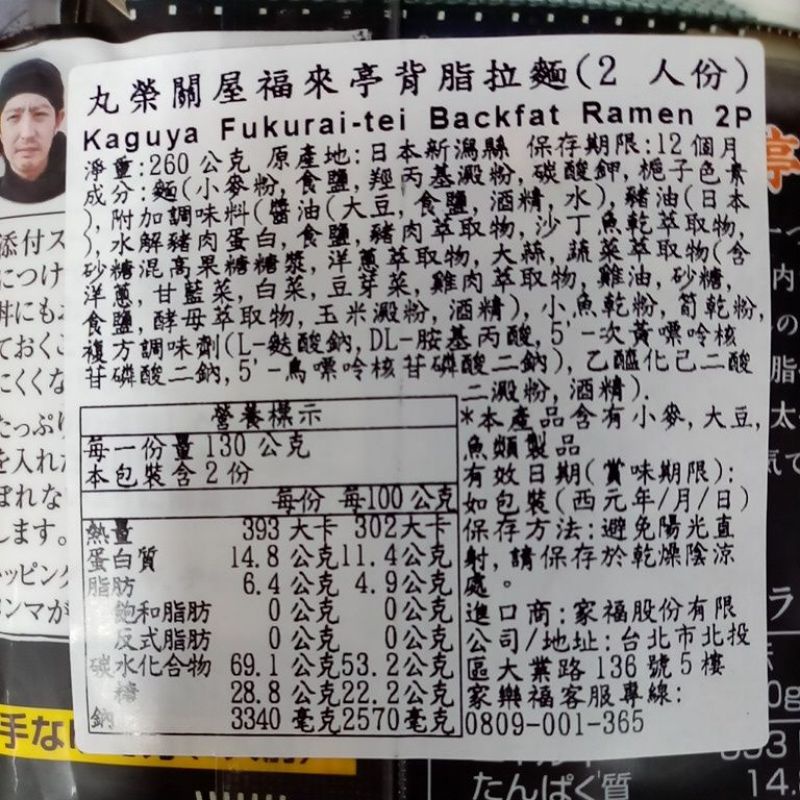 丸榮關屋福來亭背脂拉麵(2 人份)
Kaguya Fukurai-tei Backfat Ramen 2P
淨重:260 公克 原產地:日本新潟縣 保存期限:12 個月
成分:麵(小麥粉, 食鹽, 羥丙基澱粉, 碳酸鉀, 梔子色素
), 附加調味料(醬油(大豆, 食鹽, 酒精, 水), 豬油(日本
), 水解豬肉蛋白, 食鹽, 豬肉萃取物, 沙丁魚乾萃取物,
砂糖混高果糖糖漿, 洋蔥萃取物, 大蒜, 蔬菜萃取物(含
洋蔥, 甘藍菜, 白菜, 豆芽菜, 雞肉萃取物, 雞油, 砂糖,
食鹽, 酵母萃取物, 玉米澱粉, 酒精), 小魚乾粉, 筍乾粉,
複方調味劑(L-麩酸鈉, DL-胺基丙酸, 5'-次黃嘌呤核
苷磷酸二鈉, 5'-鳥嘌呤核苷磷酸二鈉), 乙醯化己二酸
二澱粉, 酒精).
營養標示
每一份量 130 公克
本包裝含 2 份
每份 每100 公克
熱量 393 大卡 302大卡
蛋白質 14.8 公克11.4公克
脂肪 6.4 公克 4.9公克
飽和脂肪 0 公克 0公克
反式脂肪 0 公克 0公克
碳水化合物 69.1 公克53.2公克
糖 28.8 公克22.2公克
鈉 3340 毫克2570毫克
*本產品含有小麥, 大豆,
魚類製品
有效日期(賞味期限):
如包裝(西元年/月/日)
保存方法:避免陽光直
射, 請保存於乾燥陰涼
處。
進口商:家福股份有限
公司/地址:台北市北投
區大業路 136 號 5 樓
家樂福客服專線:
0809-001-365
添付ス
につけ
丼にも
ておくこ
にくくな
たっぷり
を入れた
ぼれな
します。
トッピング
手なI
たんぱく質
14.